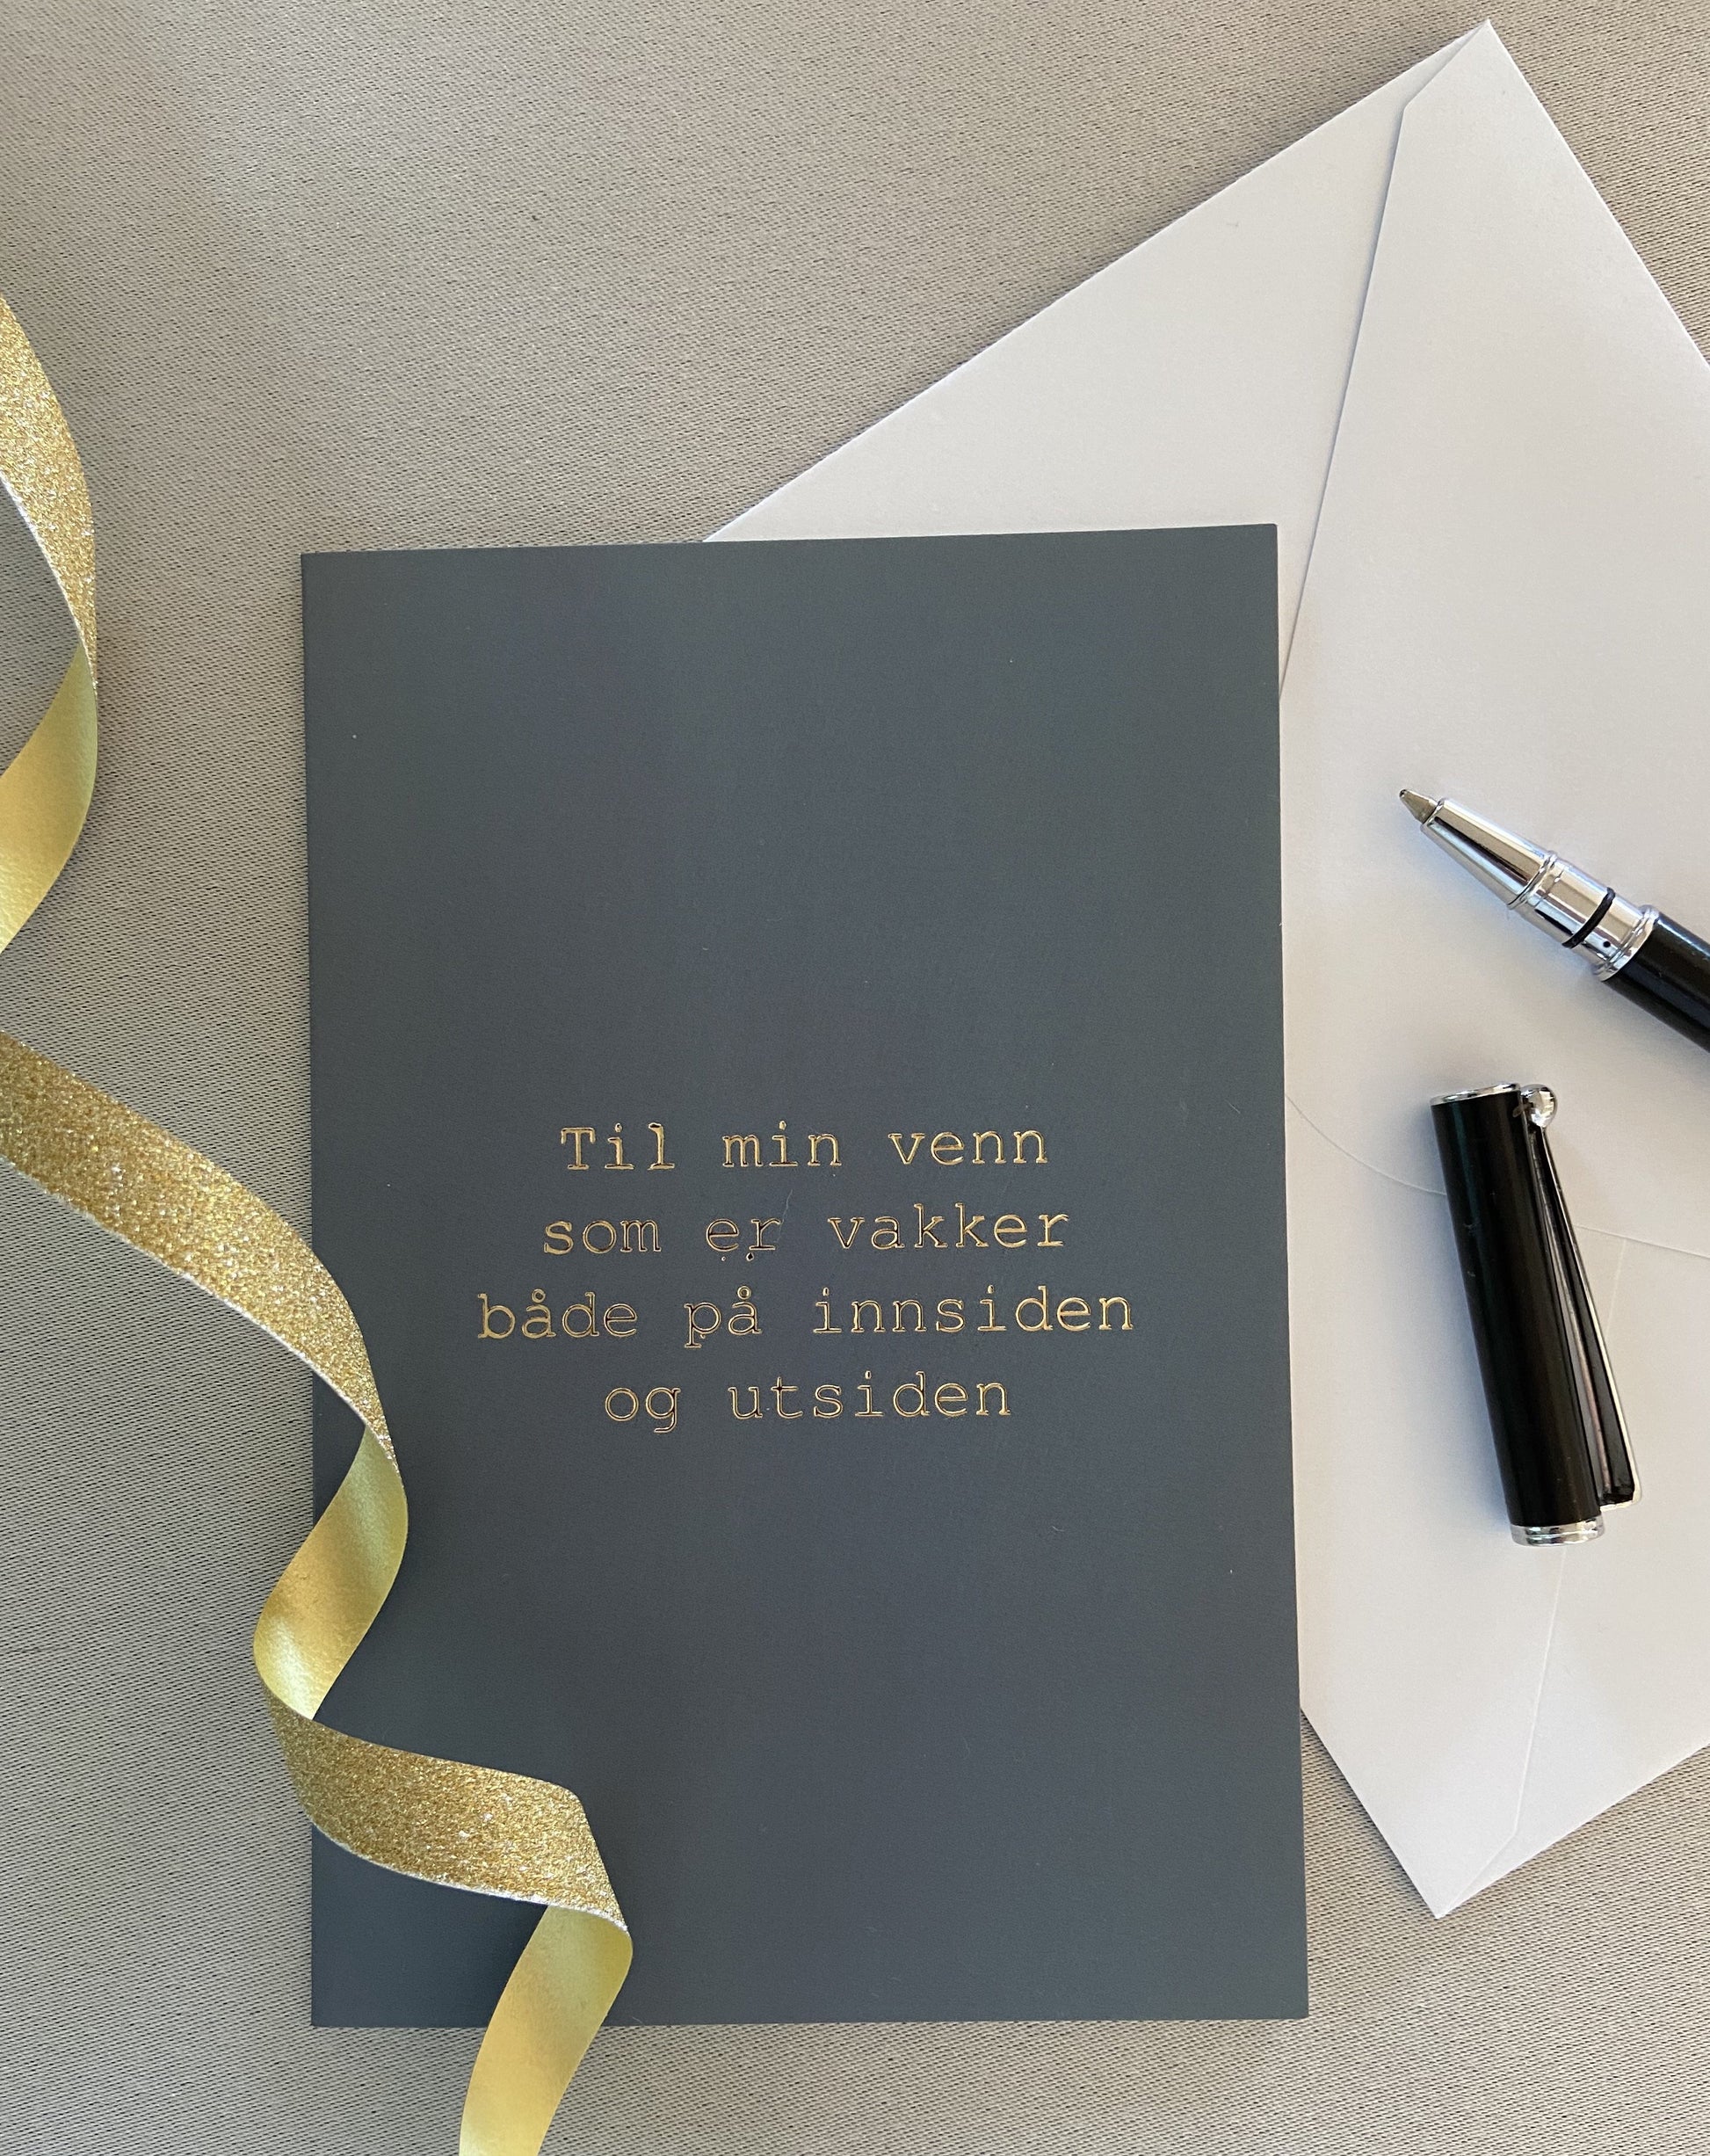 Til min venn
som er vakker
både på innsiden
og utsiden